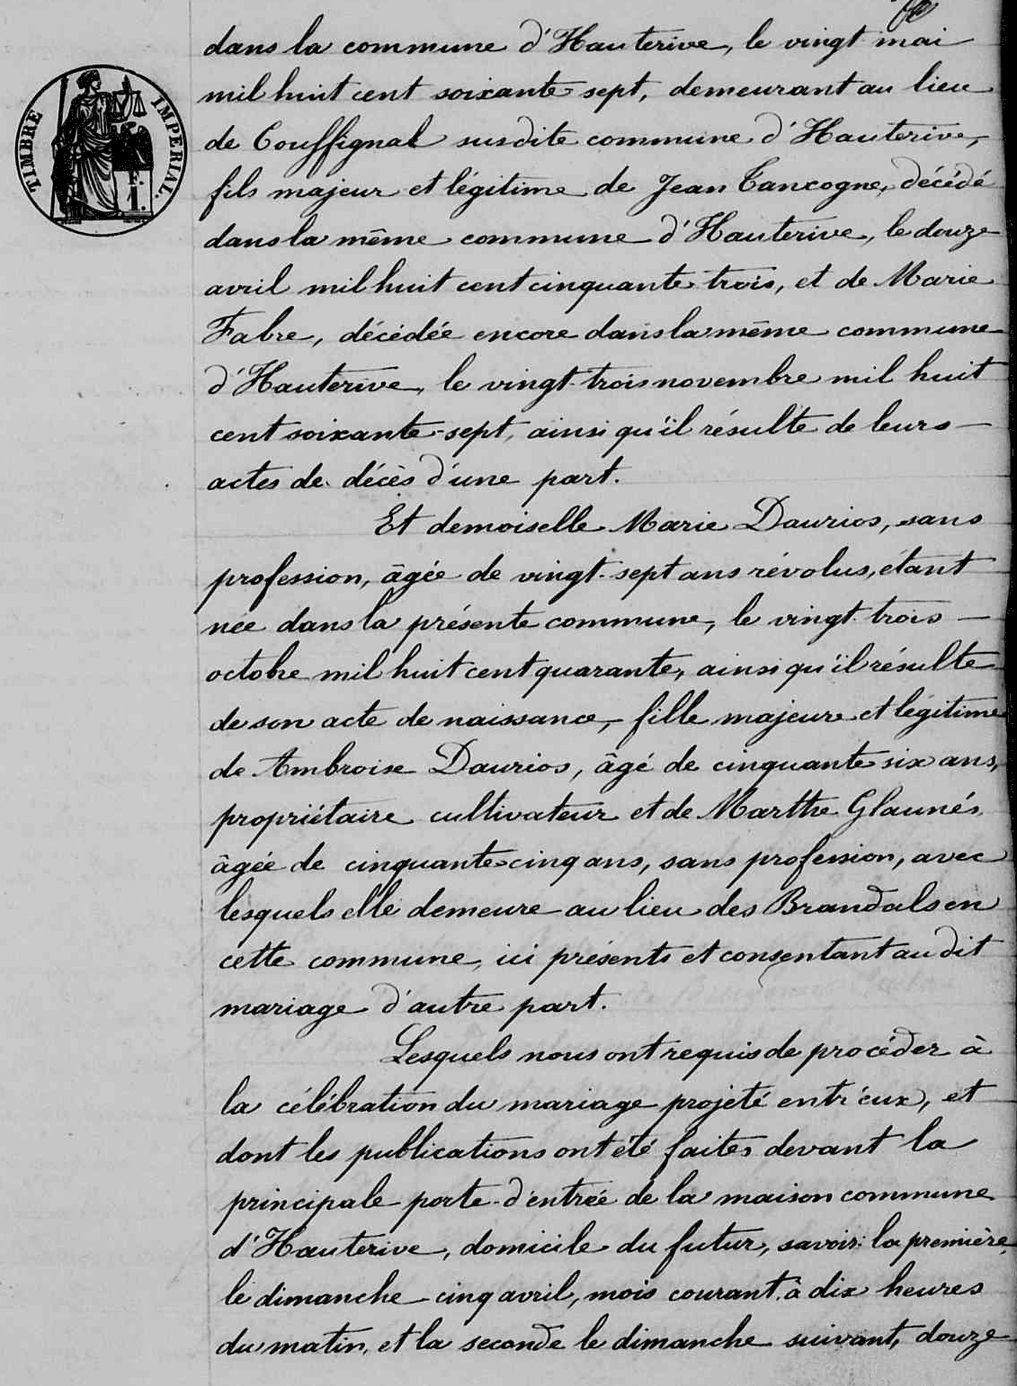 dans la commune d'Hauterive, le vingt mai
mil huit cent soixante sept, demeurant au lieu
de Couffignal susdite commune d'Hauterive,
TIMBRE IMPERIAL.
fils majeur et légitime de Jean Tancogne, décédé
dans la même commune d'Hauterive, le douze
avril mil huit cent cinquante trois, et de Marie
Fabre, décédée encore dans la même commune
d'Hauterive, le vingt-trois novembre mil huit
cent soixante-sept, ainsi qu'il résulte de leurs
actes de décès d'une part.
Et demoiselle Marie Daurios, sans
profession, âgée de vingt-sept ans révolus, étant
née dans la présente commune, le vingt-trois
octobre mil huit cent quarante, ainsi qu'il résulte
de son acte de naissance, fille majeure et légitime
de Ambroise Daurios, âgé de cinquante six ans,
propriétaire cultivateur et de Marthe Glaunés
âgée de cinquante cinq ans, sans profession, avec
lesquels elle demeure au lieu des Brandals en
cette commune, ici présents et consentant au dit
mariage d'autre part.
Lesquels nous ont requis de procéder à
la célébration du mariage projeté entr'eux, et
dont les publications ont été faites devant la
principale porte d'entrée de la maison commune
d'Hauterive, domicile du futur, savoir: la première,
le dimanche cinq avril, mois courant, à dix heures
du matin, et la seconde le dimanche suivant, douze